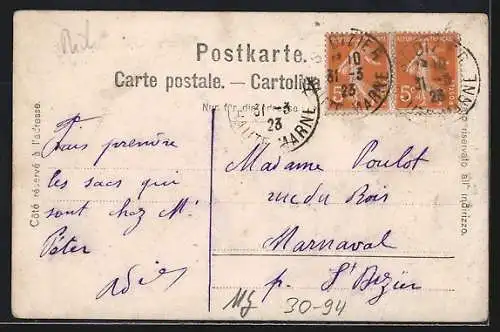 Postkarte.
Carte postale. — Cartolina
Nur für die Adresse
Côté réservé à l'adresse.
riservato all' indirizzo.
DIZIER
10
31-3
23
HAUTE MARNE
5c
5c
31-3
23
HAUTE MARNE
Fais prendre
les sacs qui
sont chez Mr
Péter
Madame Poulot
rue du Bois
Marnaval
p. St Dizier
30-94